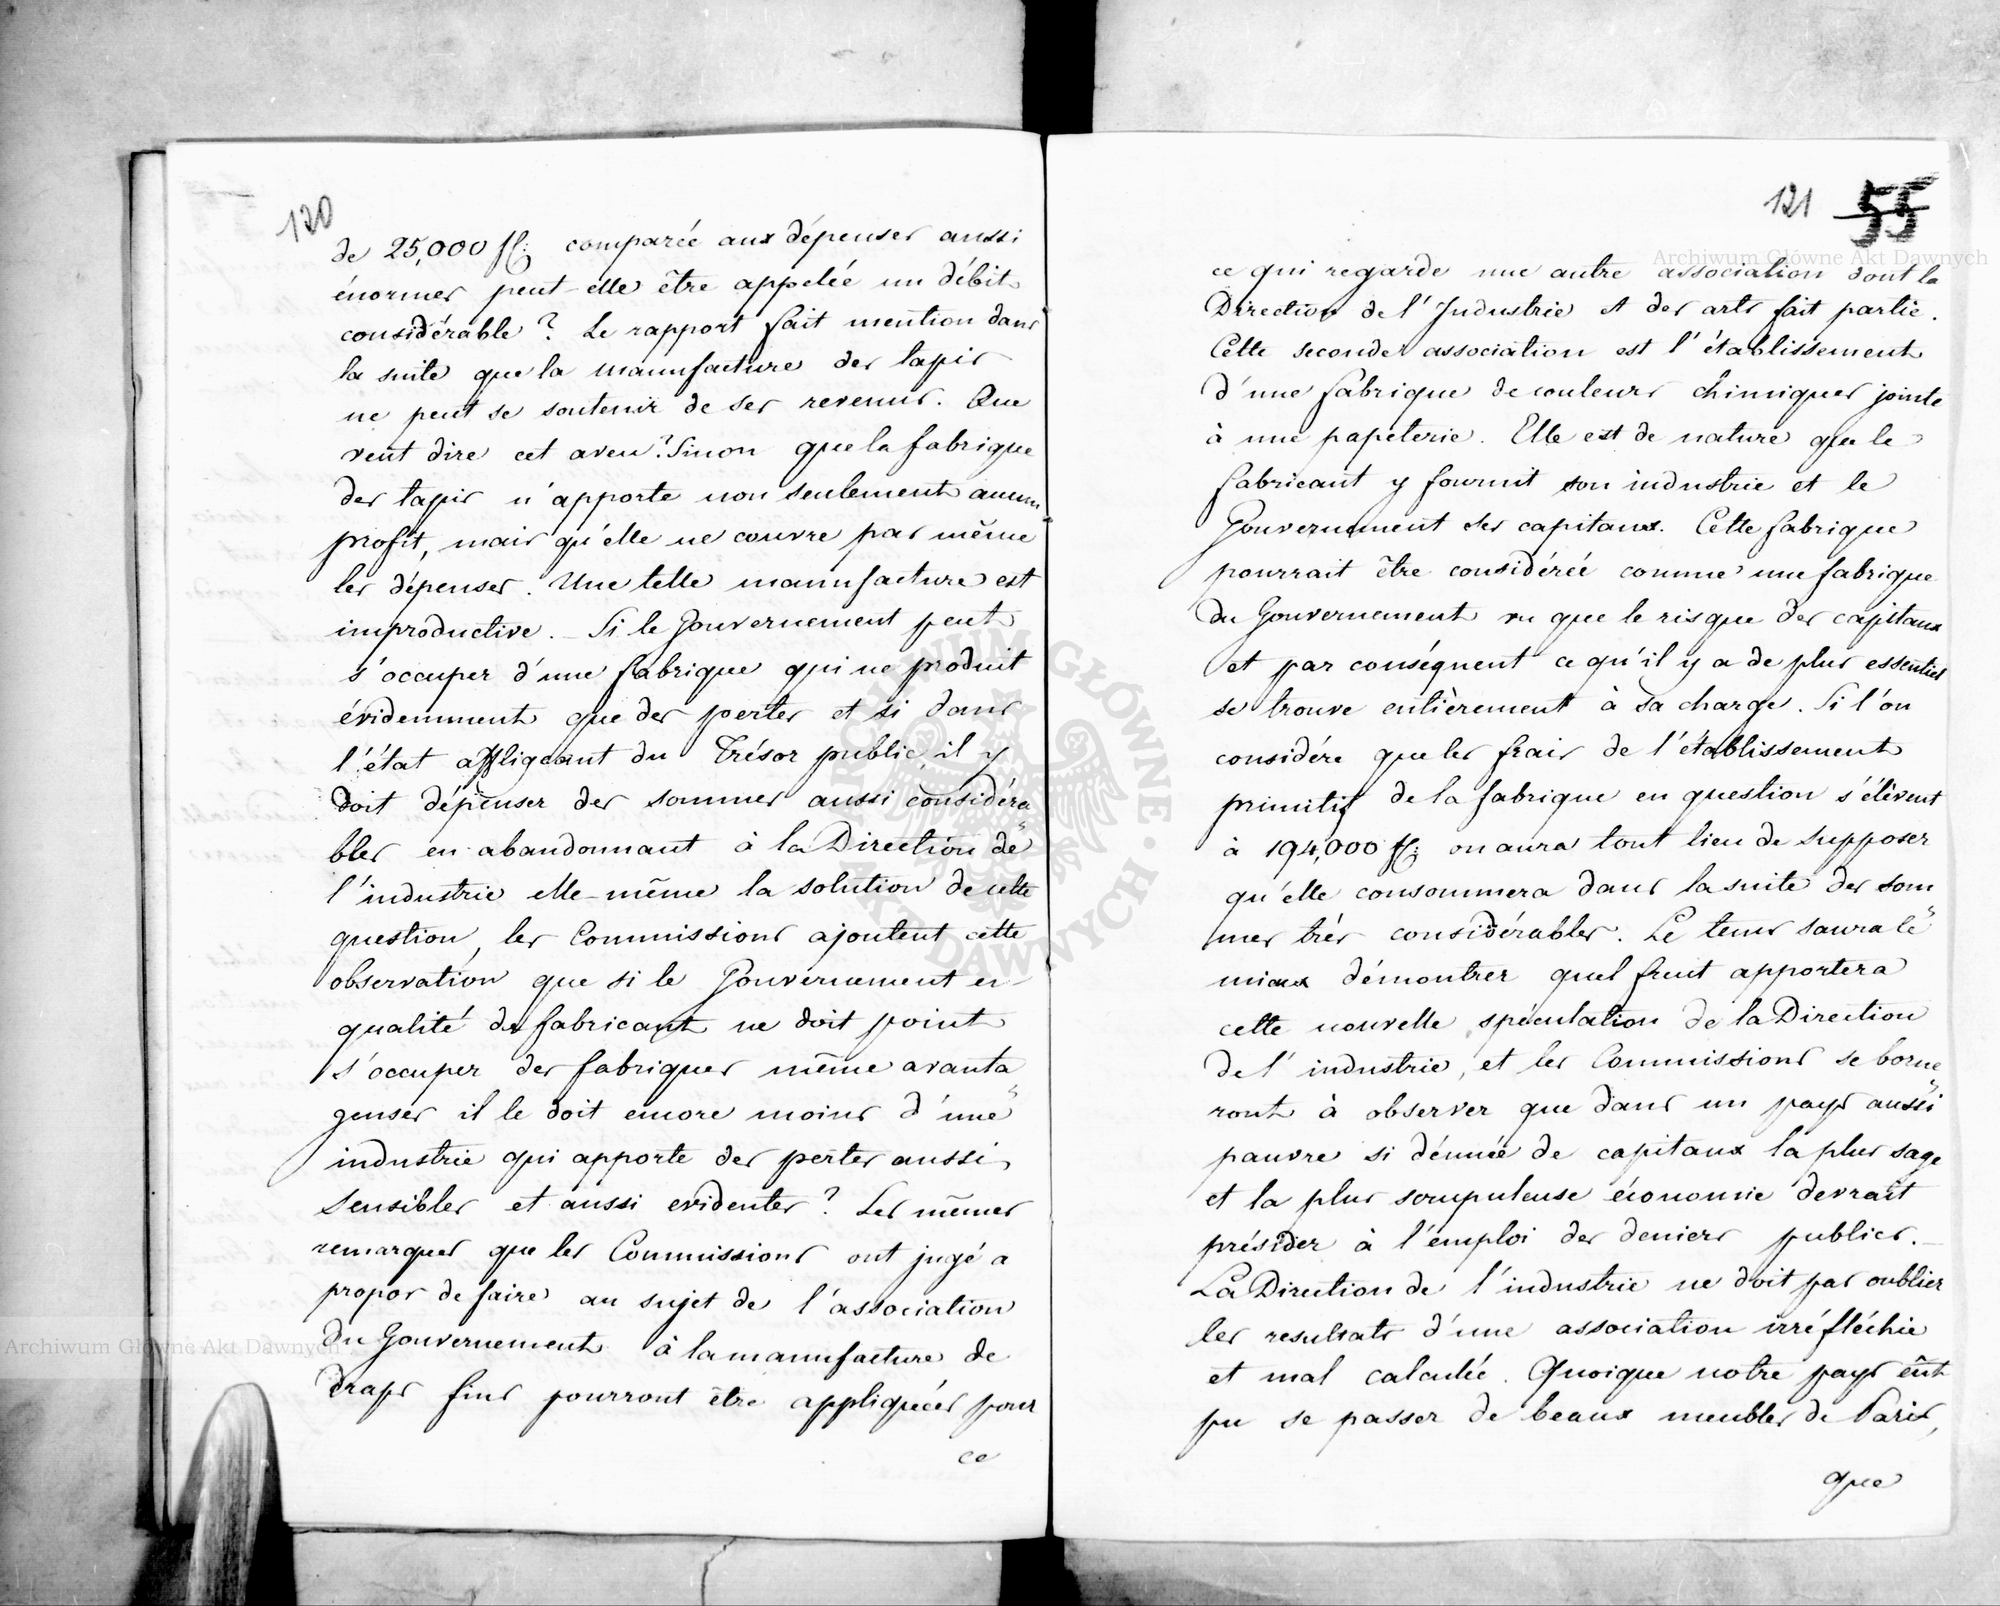 120
de 25,000 fl: comparée aux dépenses aussi
énormes peut-elle être appelée un débit
considérable? Le rapport fait mention dans
la suite que la manufacture des tapis
ne peut se soutenir de ses revenus. Que
veut dire cet aveu? Sinon que la fabrique
des tapis n'apporte non seulement aucun
profit, mais qu'elle ne couvre pas même
les dépenses. Une telle manufacture est
improductive. - Si le Gouvernement peut
s'occuper d'une fabrique qui ne produit
évidemment que des pertes et si dans
l'état affligeant du Trésor public, il y
doit dépenser des sommes aussi considéra
bles en abandonnant à la Direction de
l'industrie elle-même la solution de cette
question, les Commissions ajoutent cette
observation que si le Gouvernement en
qualité de fabricant ne doit point
s'occuper des fabriques même avanta
geuses il le doit encore moins d'une
industrie qui apporte des pertes aussi
sensibles et aussi evidentes? Les mêmes
remarques que les Commissions ont jugé a
propos de faire au sujet de l'association
du Gouvernement à la manufacture de
draps fins pourront être appliquées pour
ce
121 55
ce qui regarde une autre association dont la
Direction de l'Industrie et des arts fait partie.
Cette seconde association est l'établissement
d'une fabrique de couleurs chimiques jointe
à une papeterie. Elle est de nature que le
fabricant y fournit son industrie et le
Gouvernement ses capitaux. Cette fabrique
pourrait être considérée comme une fabrique
du Gouvernement vu que le risque des capitaux
et par conséquent ce qu'il y a de plus essentiel
se trouve entièrement à sa charge. Si l'on
considére que les frais de l'établissement
primitif de la fabrique en question s'élèvent
à 194,000 fl: on aura tout lieu de supposer
qu'elle consommera dans la suite des som
mes très considérables. Le tems saura le
mieux démontrer quel fruit apportera
cette nouvelle spéculation de la Direction
de l'industrie, et les Commissions se borne
ront à observer que dans un pays aussi
pauvre si dénué de capitaux la plus sage
et la plus scrupuleuse économie devrait
présider à l'emploi des deniers publics. -
La Direction de l'industrie ne doit pas oublier
les resultats d'une association irréfléchie
et mal calculée. Quoique notre pays eût
pu se passer de beaux meubles de Paris,
que
Archiwum Główne Akt Dawnych
Archiwum Główne Akt Dawnych
ARCHIWUM GŁÓWNE AKT DAWNYCH